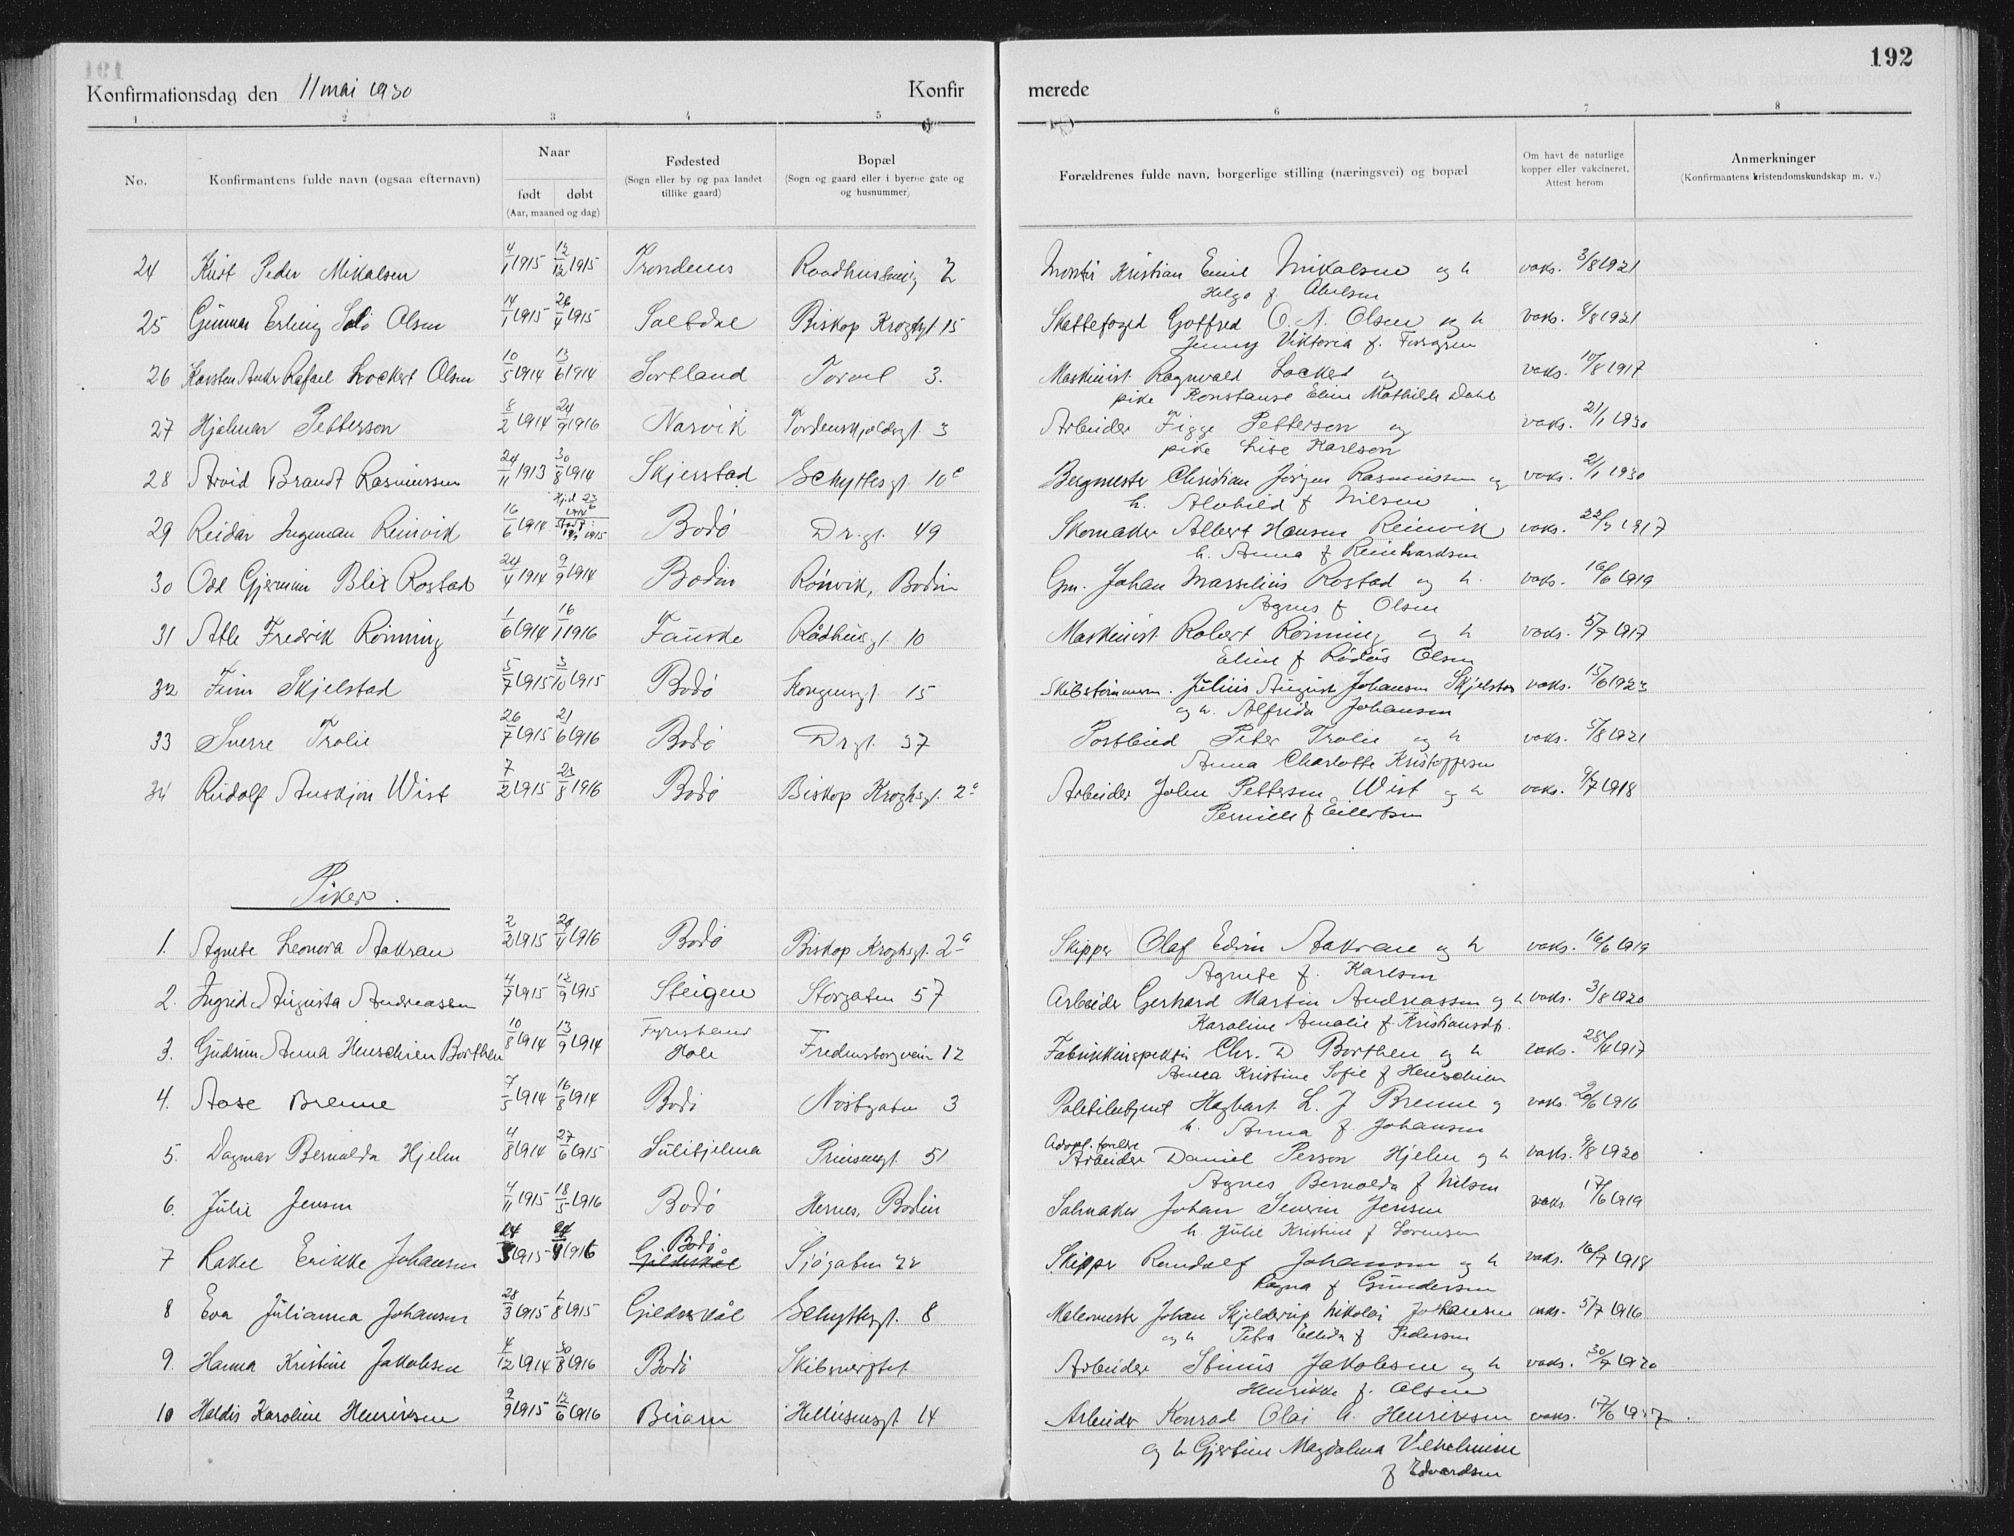 192
Konfirmationsdag den 11 mai 1930 Konfir merede
1 2 3 4 5 6 7 8
No. Konfirmantens fulde navn (ogsaa efternavn) Naar født døbt (Aar, maaned og dag) Fødested (Sogn eller by og paa landet tillike gaard) Bopæl (Sogn og gaard eller i byerne gate og og husnummer) Forældrenes fulde navn, borgerlige stilling (næringsvei) og bopæl Om havt de naturlige kopper eller vakcineret. Attest herom Anmerkninger (Konfirmantens kristendomskundskap m. v.)
24 Peder Mikalsen 4/1 1915 12/12 1915 Trondenes 2 Montør Kristian Emil Mikalsen og h vaks. 3/8 1921
Helga f.
25 Gunnar Erling Olsen 14/1 1915 26/4 1915 Saltdal Biskop Kroghsgt 15 Skattefoged Gotfred O. A. Olsen og h vaks. 8/8 1921
Jenny Viktoria f.
26 Karsten Anker Rafael Lockert Olsen 10/5 1914 13/6 1914 Sortland Torvet 3. Maskinist Ragnvald Lockert og vaks. 10/8 1917
pike Konstanse Eline Mathilde Dahl
27 Hjalmar Petterson 8/2 1914 24/9 1916 Narvik Tordenskjoldsgt. 3 Arbeider Figge Petterson og vaks. 21/1 1930
pike Lise Karlson
28 Arvid Brandt Rasmussen 24/11 1913 30/8 1914 Skjerstad Schyttesgt. 10c Bergmester Christian Jørgen Rasmussen og vaks. 21/1 1930
h. Alvhild f Nilsen
29 Reidar Ingeman Reinvik 16/6 1914 Bodø Dr.gt. 49 Skomaker Albert Hansen Reinvik vaks. 22/7 1917
h. Anna f Reinhardsen
30 Odd Gjermin Blix Rostad 24/4 1914 9/9 1914 Bodin Rönvik, Bodin Gm. Johan Marselius Rostad og h. vaks. 16/6 1919
Agnes f Olsen
31 Atle Fredrik Rönning 1/6 1914 16/1 1916 Fauske Rådhusgt. 10 Maskinist Robert Rönning og h vaks. 5/7 1917
Eline f Olsen
32 Finn Skjelstad 5/7 1915 3/10 1915 Bodø Kongensgt. 15 Julius August Johansen Skjelstad vaks. 15/6 1923
og h. Alfrida Johansen
33 Sverre Trolie 26/7 1915 21/6 1916 Bodø Dr.gt. 37 Postbud Peter Trolie og h vaks. 5/8 1921
Anna Charlotte Kristoffersen
34 Rudolf Anskjön Wist 7/2 1915 23/8 1916 Bodø Biskop Kroghsgt. 2a Arbeider John Pettersen Wist og h vaks. 9/7 1918
Pernille f Eilertsen
Piker.
1. Agnete Leonora Aakran 2/2 1915 24/4 1916 Bodø Biskop Kroghsgt. 2a Skipper Olaf Edvin Aakran og h vaks. 16/6 1919
Agnete f. Karlsen
2. Ingrid Augusta Andreassen 4/7 1915 12/9 1915 Steigen Storgaten 57 Arbeider Gerhard Martin Andreassen og h vaks. 3/8 1920
Karoline Amalie f Kristiansdt.
3. Gudrun Anna Henschien Borthen 10/8 1914 13/9 1914 Hole Fredensborgveien 12 Chr. D Borthen og h vaks. 28/4 1917
Anna Kristine Sofie f Henschien
4. Aase Brenne 7/5 1914 16/8 1914 Bodø 3 Politibetjent Hagbart L. J Brenne og vaks. 26/6 1916
h. Anna f Johansen
5. Dagmar Bernolda Hjelm 4/8 1914 27/6 1915 Sulitjelma Prinsensgt. 51 Adopt.
Arbeider Daniel Person Hjelm og h vaks. 9/8 1920
Agnes Bernolda f Nilsen
6. Julie Jensen 4/11 1915 18/5 1916 Bodø Hernes, Bodin Salmaker Johan Severin Jensen vaks 17/6 1919
h Julie Kristine f Sørensen
7 Rakel Erikke Johansen 24/3 1915 24/4 1916 Bodø Gildeskål Sjögaten 22 Skipper Randolf Johansen og h vaks. 16/7 1918
Ragna f Gundersen
8 Eva Julianna Johansen 28/3 1915 1/8 1915 Gildeskål Schyttesgt. 8 Malermester Johan Skjelderup Nikolai Johansen vaks. 5/7 1916
og h Petra Ellida f Pedersen
9. Hanna Kristine Jakobsen 4/12 1914 30/8 1916 Bodø Skibsverftet Arbeider Jakobsen og h vaks. 30/7 1920
Henrikke f. Olsen
10 Haldis Karoline Henriksen 9/9 1915 12/6 1916 Beiarn Hellusensgt. 14 Arbeider Konrad Olai A. Henriksen vaks. 17/6 1927.
og h Gjertine Magdalena Vilhelmine
f Edvardsen